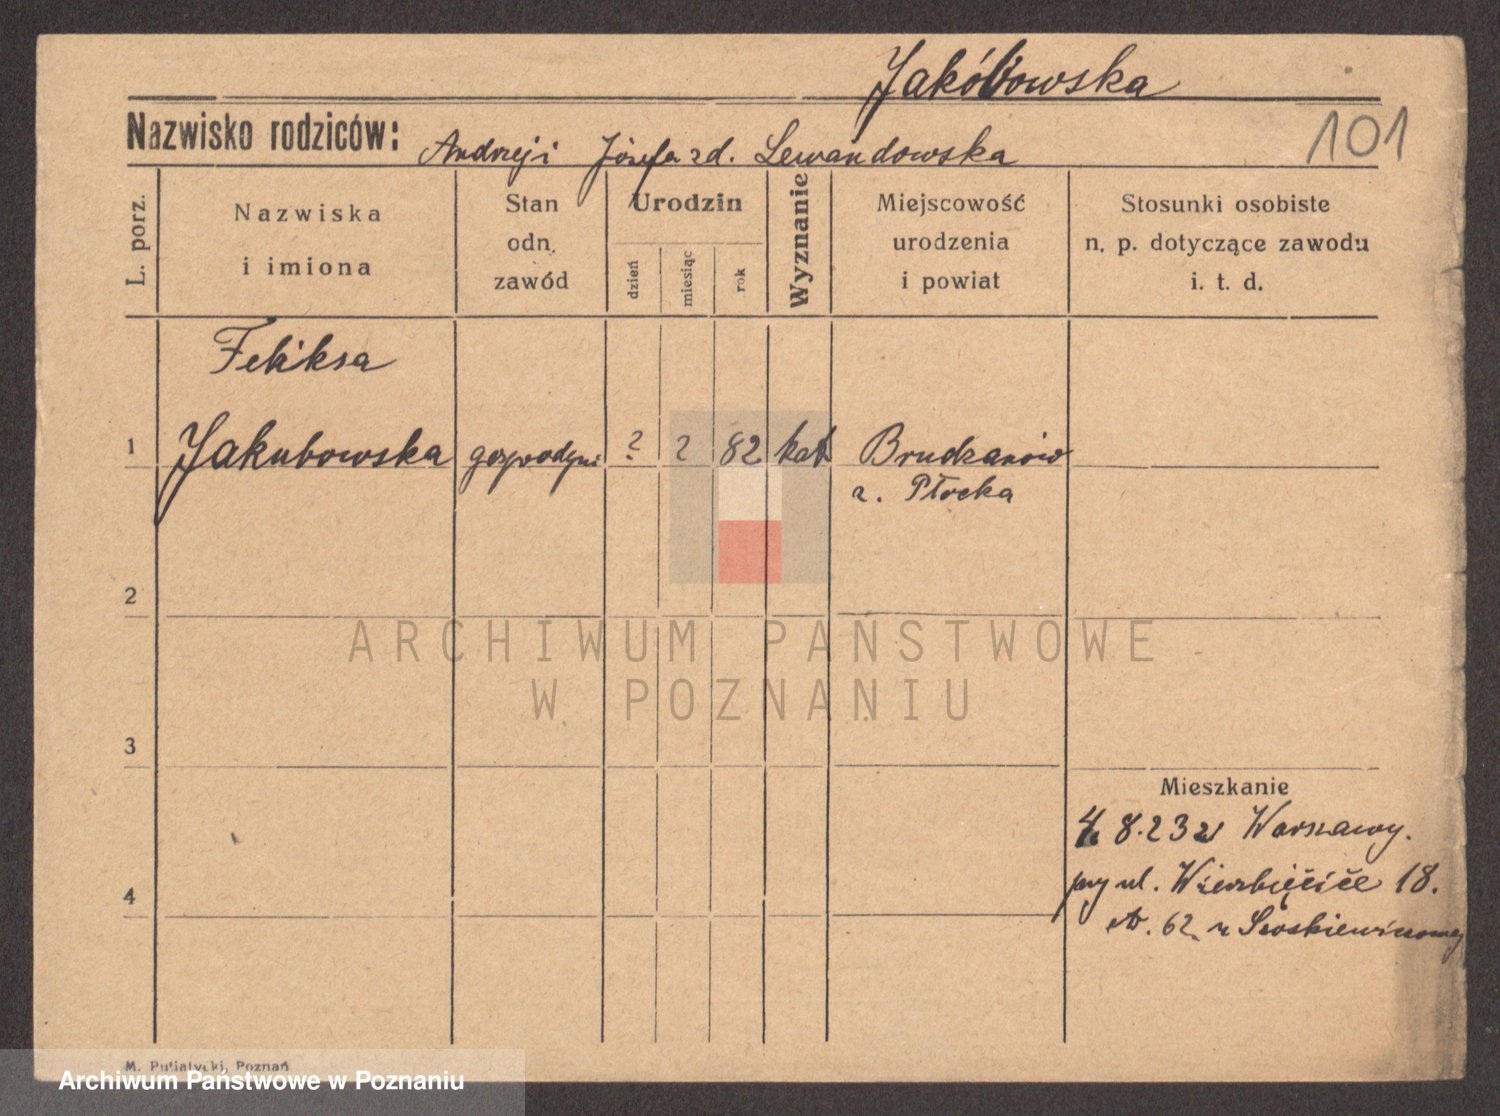 Jakóbowska
Nazwisko rodziców: Andrzej i Józefa zd. Lewandowska
101
L. porz.
Nazwiska
i imiona
Stan
odn.
zawód
Urodzin
dzień
miesiąc
rok
Wyznanie
Miejscowość
urodzenia
i powiat
Stosunki osobiste
n. p. dotyczące zawodu
i. t. d.
Feliksa
1 Jakubowska gospodyni ? 2 82 kat Brudzanów
z. Płocka
2
ARCHIWUM PAŃSTWOWE
W POZNANIU
3
Mieszkanie
4. 8.23 z Warszawy.
przy ul. Wierzbięcice 18.
4
62 u
M. Putiatycki, Poznań
Archiwum Państwowe w Poznaniu